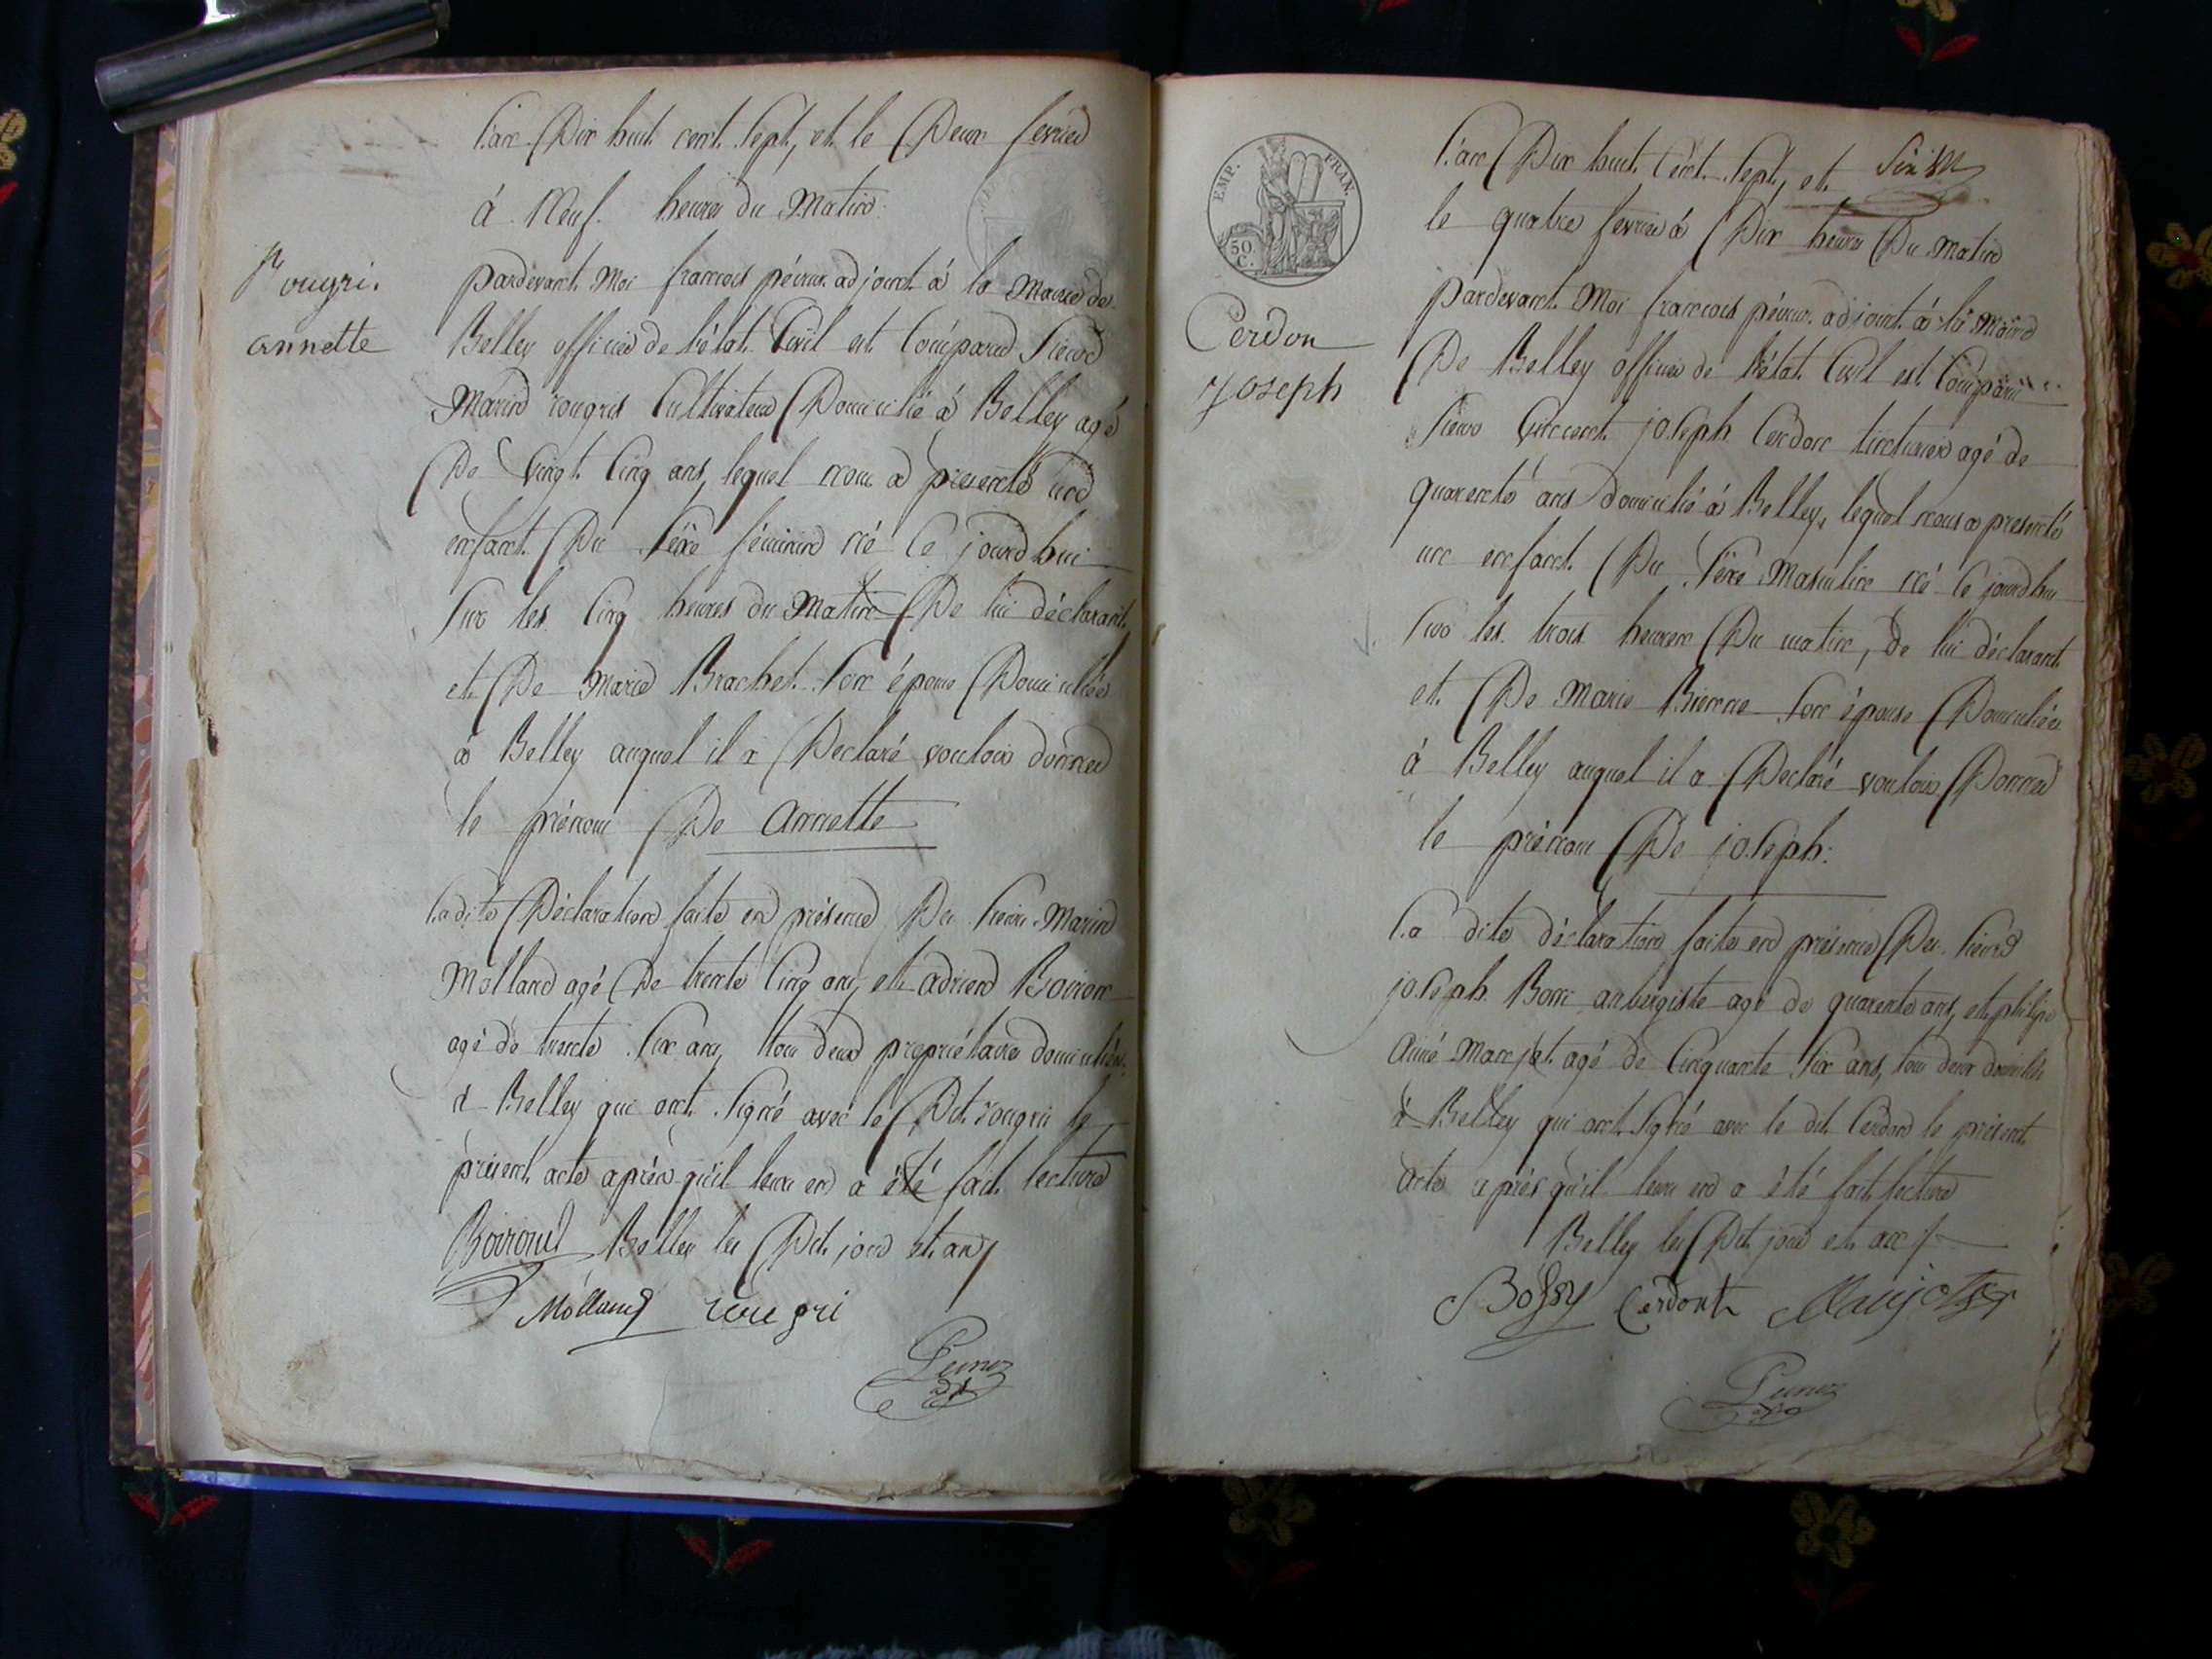 L'an Dix huit cent Sept, et le Deux fevrier
à Neuf heures du Matin
Rougri
annette
pardevant Moi francois péroux adjoint à la Mairie de
Belley officier de l'état Civil est Comparu Sieur
Marin rougris Cultivateur Domicilié à Belley agé
De Vingt Cinq ans, lequel nous a presenté un
enfant Du Sèxe féminin né Ce jourdhui
Sur les Cinq heures du Matin De lui déclarant
et De Marie Brachet Son épouse Domiciliée
à Belley auquel il a Declaré vouloir donner
le prénom De annette
La dite Déclaration faite en présence Du Sieur Marin
Molland agé De trente Cinq ans, et adrien Boiron
agé de trente Six ans, tous deux propriétaires domiciliés
à Belley qui ont Signé avec le Dit rougris le
présent acte après qu'il leur en a été fait lecture
Belley les Dit jour et an
Molland rougri
EMP. FRAN.
50 C.
L'an Dix huit Cent Sept, et
le quatre fevrier à Dix heures Du Matin
Cerdon
Joseph
pardevant Moi francois péroux adjoint à la Mairie
De Belley officier de l'état Civil est Comparu
Sieur Vincent joseph Cerdon tinturier agé de
quarente ans domicilié à Belley, lequel nous a presenté
un enfant Du Sèxe Masculin né Ce jourdhui
Sur les trois heures Du matin, de lui déclarant
et De Marie Son épouse Domiciliée
à Belley auquel il a Declaré vouloir Donner
le prénom De joseph.
La dite déclaration faite en présence Du Sieur
joseph aubergiste agé de quarente ans, et philipe
aimé Marjot agé de Cinquante Six ans, tous deux domiciliés
à Belley qui ont Signé avec le dit Cerdon le présent
acte après qu'il leur en a été fait lecture
Belley les Dit jour et an
Cerdont